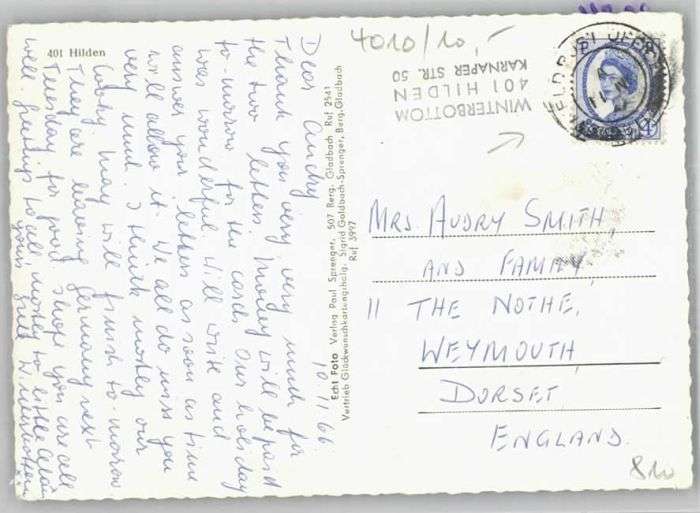 401 Hilden
10/11/66
Dear Audry,
Thank you very much for
the two letters. Motley will be posed
to-morrow for the cards. Our holiday
was wonderful will write and
answer your letters as soon as time
will allow it. We all do miss you
very much. I think motley our
Cooky May will finish to-morrow
They are leaving Germany next
Tuesday for good. I hope you are all
well. Greetings to all, mostley to little
yours Bill Winterbottom
Echt Foto Verlag Paul Sprenger, 507 Berg. Gladbach Ruf 2541
Vertrieb Glückwunschkartengshalg. Sigrid Goldbach-Sprenger, Berg. Gladbach
Ruf 3997
4010/10,-
WINTERBOTTOM
401 HILDEN
KARNAPER STR. 50
FIELD POST OFFICE
MRS. AUDRY SMITH,
AND FAMILY,
11 THE NOTHE,
WEYMOUTH,
DORSET,
ENGLAND.